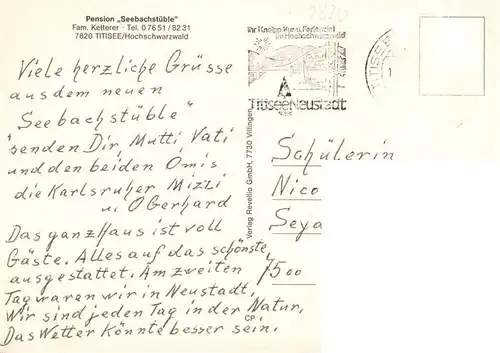 Pension „Seebachstüble"
Fam. Ketterer - Tel. 0 76 51 / 82 31
7820 TITISEE/Hochschwarzwald
Viele herzliche Grüsse
aus dem neuen
"Seebachstüble"
senden Dir, Mutti, Vati
und den beiden Omis
die Karlsruher Mizzi
u. O Gerhard
Das ganz Haus ist voll
Gäste. Alles auf das schönste
ausgestattet. Am zweiten
Tag waren wir in Neustadt,
Wir sind jeden Tag in der Natur,
Das Wetter könnte besser sein.
CP
Verlag Revellio GmbH, 7730 Villingen
Ihr Kneipp-Kur- u. Ferienziel
im Hochschwarzwald
Titisee Neustadt
TITISEE
Schülerin
Nico
Seya
7500